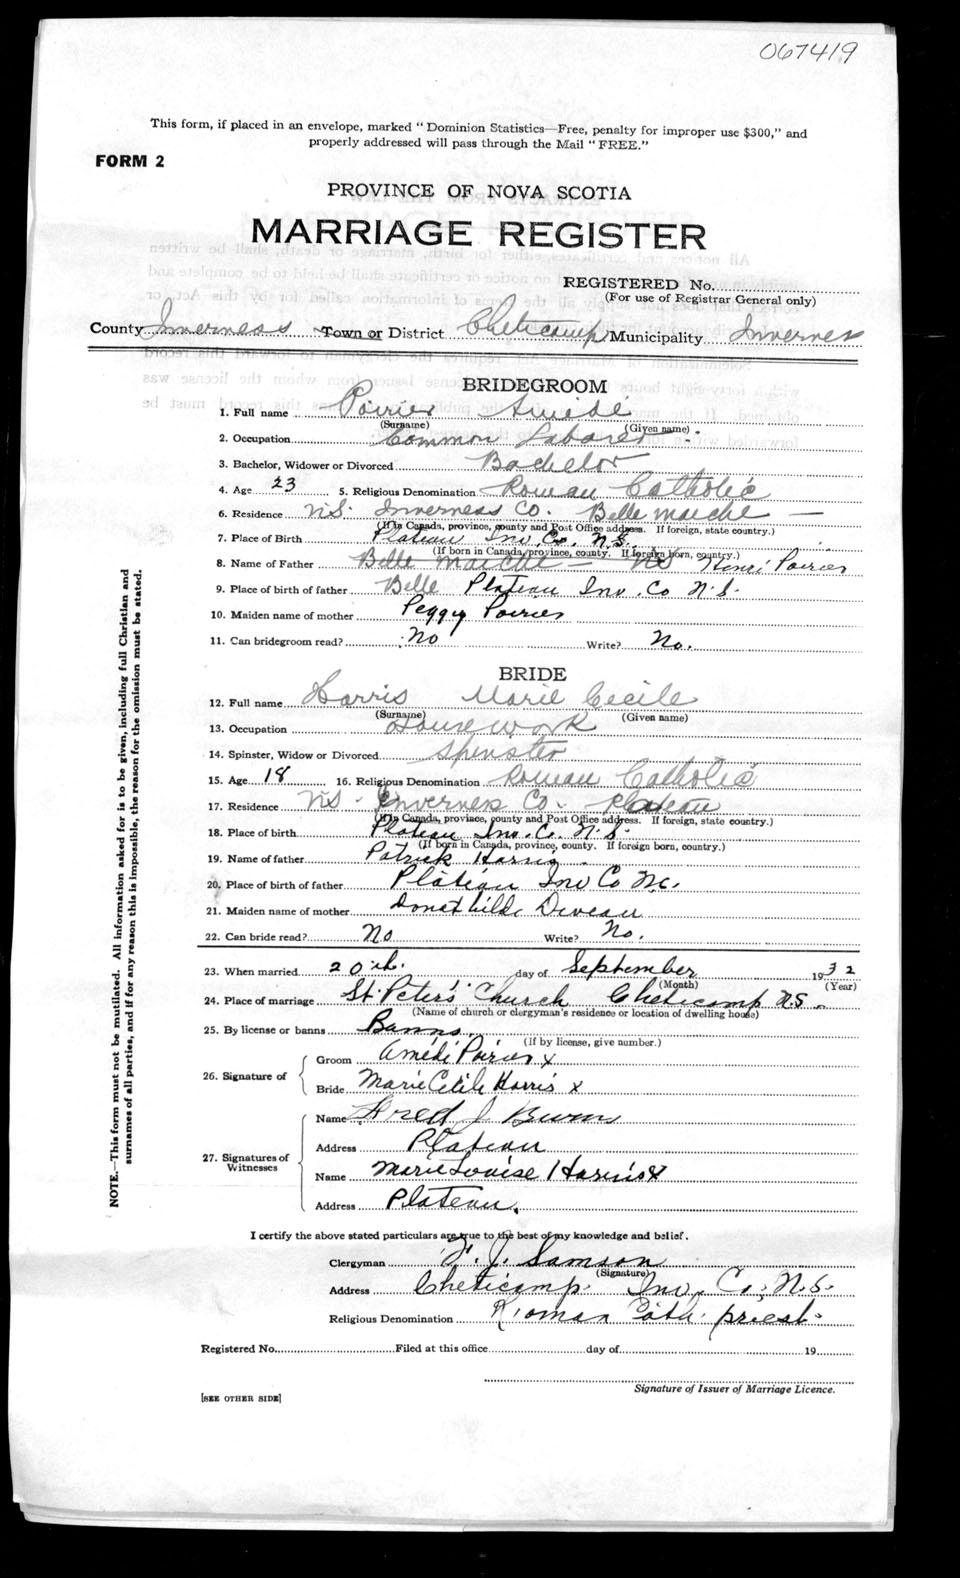 067419
This form, if placed in an envelope, marked " Dominion Statistics—Free, penalty for improper use $300," and
properly addressed will pass through the Mail " FREE."
FORM 2
PROVINCE OF NOVA SCOTIA
MARRIAGE REGISTER
REGISTERED No.
(For use of Registrar General only)
County Inverness Town or District Cheticamp Municipality Inverness
BRIDEGROOM
1. Full name Poirier Amédé
(Surname) (Given name)
2. Occupation Common Laborer
3. Bachelor, Widower or Divorced Bachelor
4. Age 23 5. Religious Denomination Roman Catholic
6. Residence N.S. Inverness Co. Belle marche
(If in Canada, province, county and Post Office address. If foreign, state country.)
7. Place of Birth Plateau Inv. Co. N.S.
(If born in Canada, province, county. If foreign born, country.)
8. Name of Father Belle marche — NS Henri Poirier
9. Place of birth of father Belle Plateau Inv. Co N.S.
10. Maiden name of mother Peggy Poirier
11. Can bridegroom read? No Write? No.
BRIDE
12. Full name Harris Marie Cecile
(Surname) (Given name)
13. Occupation Housework
14. Spinster, Widow or Divorced Spinster
15. Age 18 16. Religious Denomination Roman Catholic
17. Residence NS. Inverness Co. Plateau
(If in Canada, province, county and Post Office address. If foreign, state country.)
18. Place of birth Plateau Inv. Co. N.S.
(If born in Canada, province, county. If foreign born, country.)
19. Name of father Patrick Harris
20. Place of birth of father Plateau Inv Co NS.
21. Maiden name of mother Donathilde Deveau
22. Can bride read? No Write? No.
23. When married 20th. day of September 1932
(Month) (Year)
24. Place of marriage St. Peter's Church Cheticamp NS.
(Name of church or clergyman's residence or location of dwelling house)
25. By license or banns Banns
(If by license, give number.)
26. Signature of
Groom Amédé Poirier x
Bride Marie Cecile Harris x
27. Signatures of Witnesses
Name Fred J
Address Plateau
Name Marie Louise Harris x
Address Plateau.
I certify the above stated particulars are true to the best of my knowledge and belief.
Clergyman F. J. Samson
(Signature)
Address Cheticamp Inv. Co, N.S.
Religious Denomination Roman Cath. priest.
Registered No. Filed at this office day of 19
Signature of Issuer of Marriage Licence.
[SEE OTHER SIDE]
NOTE.—This form must not be mutilated. All information asked for is to be given, including full Christian and
surnames of all parties, and if for any reason this is impossible, the reason for the omission must be stated.